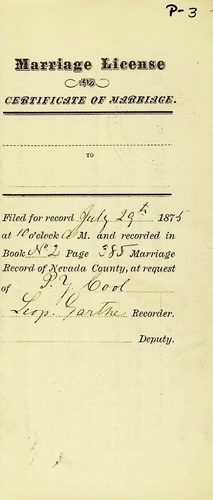 P-3
Marriage License
AND
CERTIFICATE OF MARRIAGE.
TO
Filed for record July 29th 1875
at 10 o'clock A M. and recorded in
Book No 2 Page 385 Marriage
Record of Nevada County, at request
of P. Y. Cool
Leop. Garthe Recorder.
Deputy.